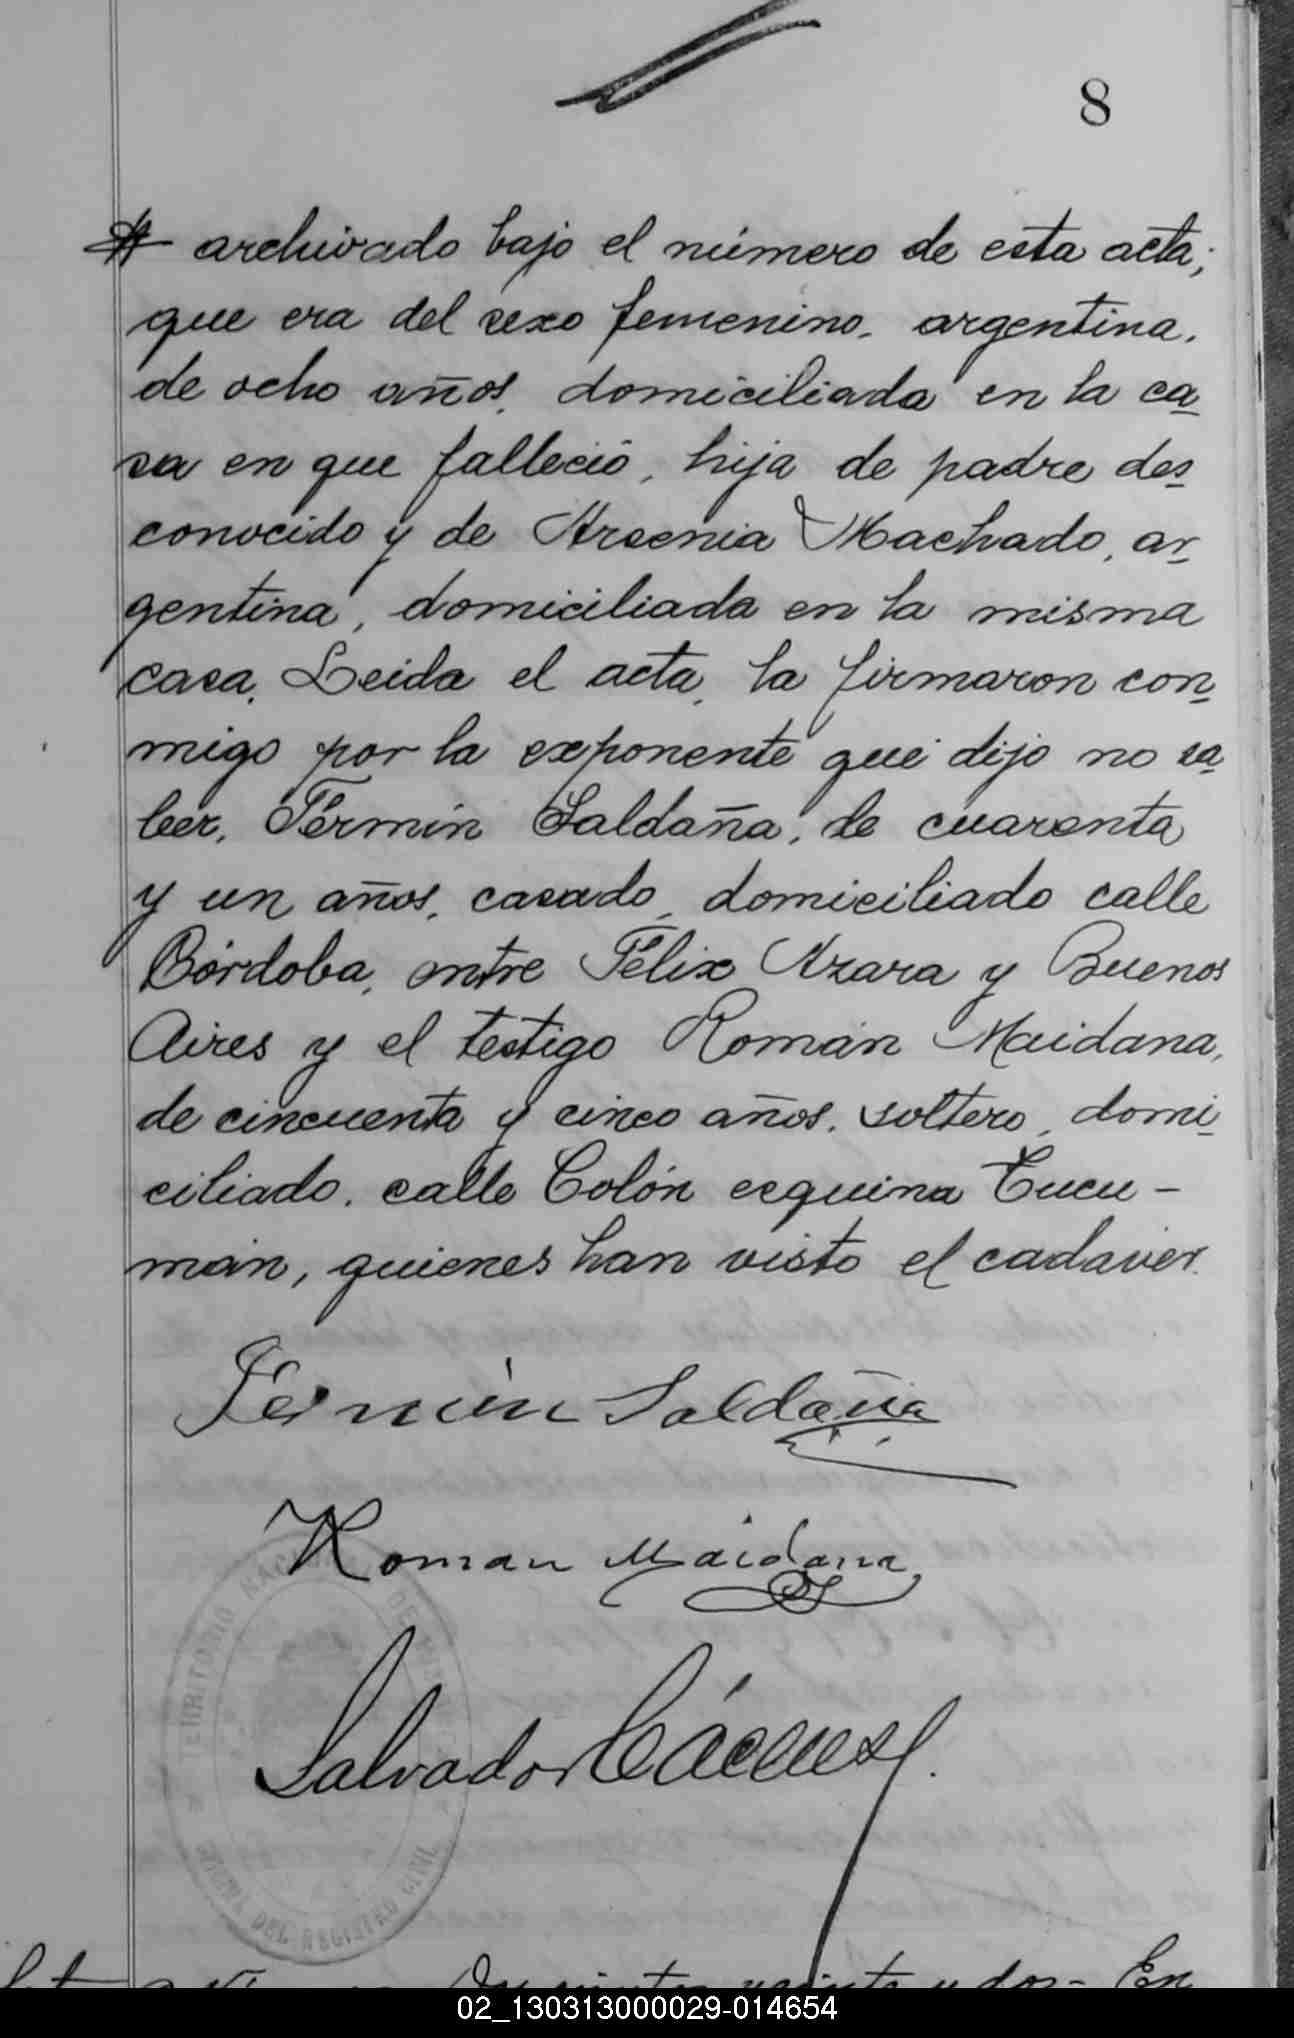 8
archivado bajo el número de esta acta;
que era del sexo femenino, argentina,
de ocho años, domiciliada en la ca-
sa en que falleció, hija de padre des-
conocido y de Arsenia Machado, ar-
gentina, domiciliada en la misma
casa. Leida el acta, la firmaron con-
migo por la exponente que dijo no sa-
ber, Fermín Saldaña, de cuarenta
y un años, casado, domiciliado calle
Córdoba, entre Félix Azara y Buenos
Aires y el testigo Román Maidana,
de cincuenta y cinco años, soltero, domi-
ciliado, calle Colón esquina Tucu-
mán, quienes han visto el cadaver.
Fermín Saldaña
Roman Maidana
Salvador Cáceres
TERRITORIO NAC DE
OFICINA DEL REGISTRO CIVIL
y dos - En
02_130313000029-014654